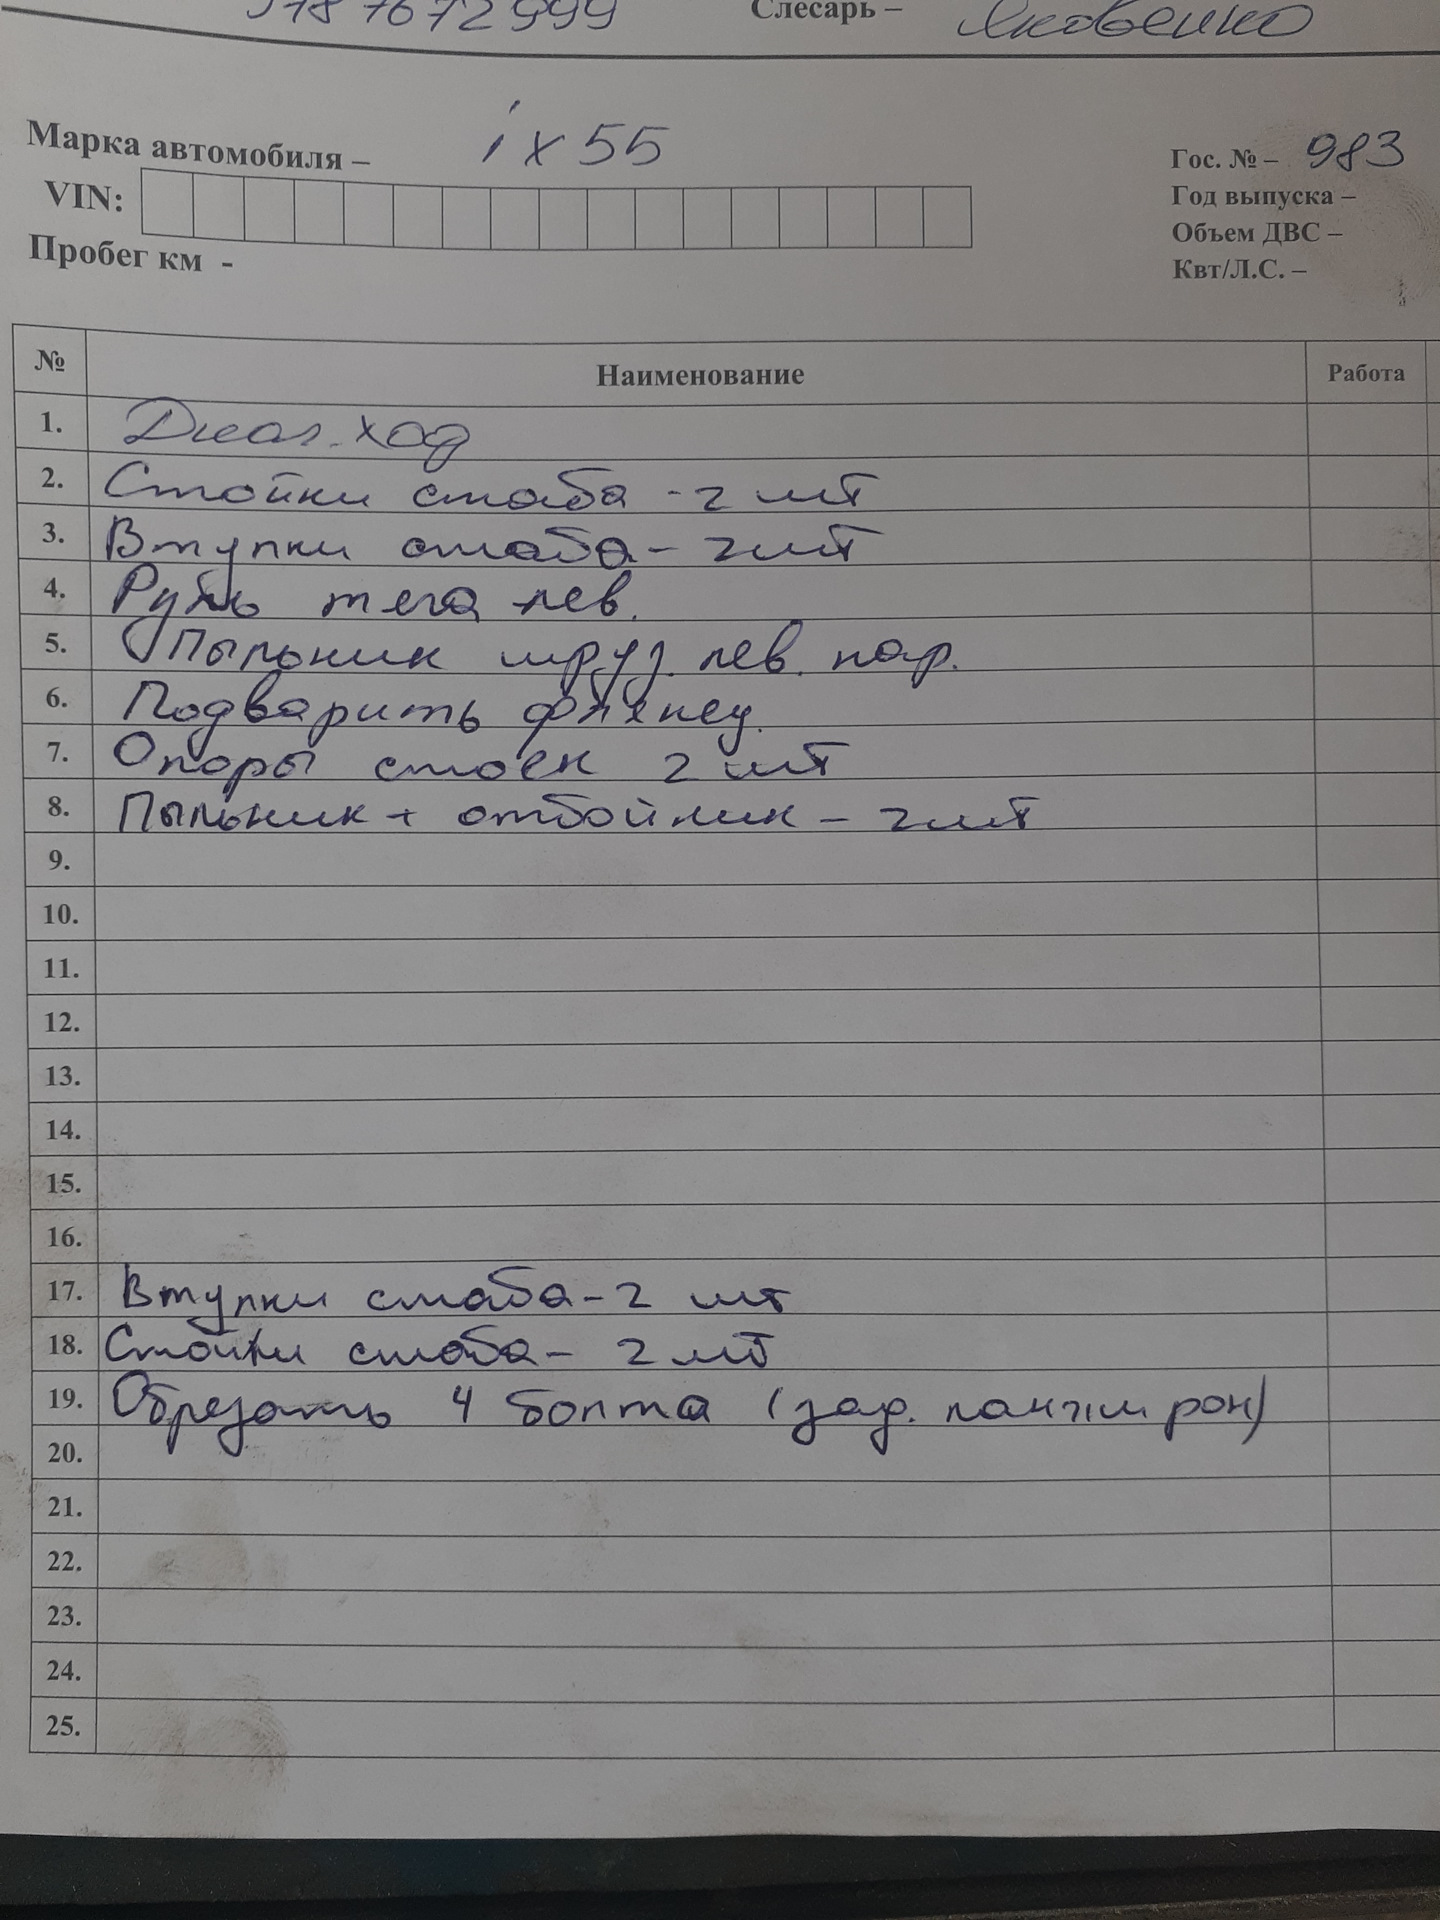 9787672999 Слесарь – Яковенко
Марка автомобиля – ix55 Гос. № – 983
VIN: Год выпуска –
Пробег км - Объем ДВС –
Квт/Л.С. –
№ Наименование Работа
1. Диаг. ход
2. Стойки стаба - 2 шт
3. Втулки стаба – 2 шт
4. Руль тяга лев.
5. Пыльник шруз. лев. нар.
6. Подварить фланец
7. Опоры стоек 2 шт
8. Пыльник + отбойник – 2 шт
9.
10.
11.
12.
13.
14.
15.
16.
17. Втулки стаба – 2 шт
18. Стойки стаба – 2 шт
19. Обрезать 4 болта (зад. ланжерон)
20.
21.
22.
23.
24.
25.